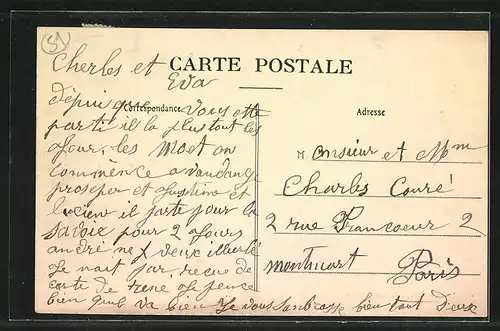 51
CARTE POSTALE
Correspondance
Adresse
Cherles et
Eva
dépui que vous ette
parti il la plus tout les
Jour. les Moet on
commence a vandange
prosper et Justine et
lucien il parte pour la
Savoie pour 2 Jours
andré ne veux
Je nait par recue de
carte de rene Je pence
bien quel va bien Je vous bien tout deux
Monsieur et Mme
Charles Couré
2 rue Francoeur 2
montmart Paris